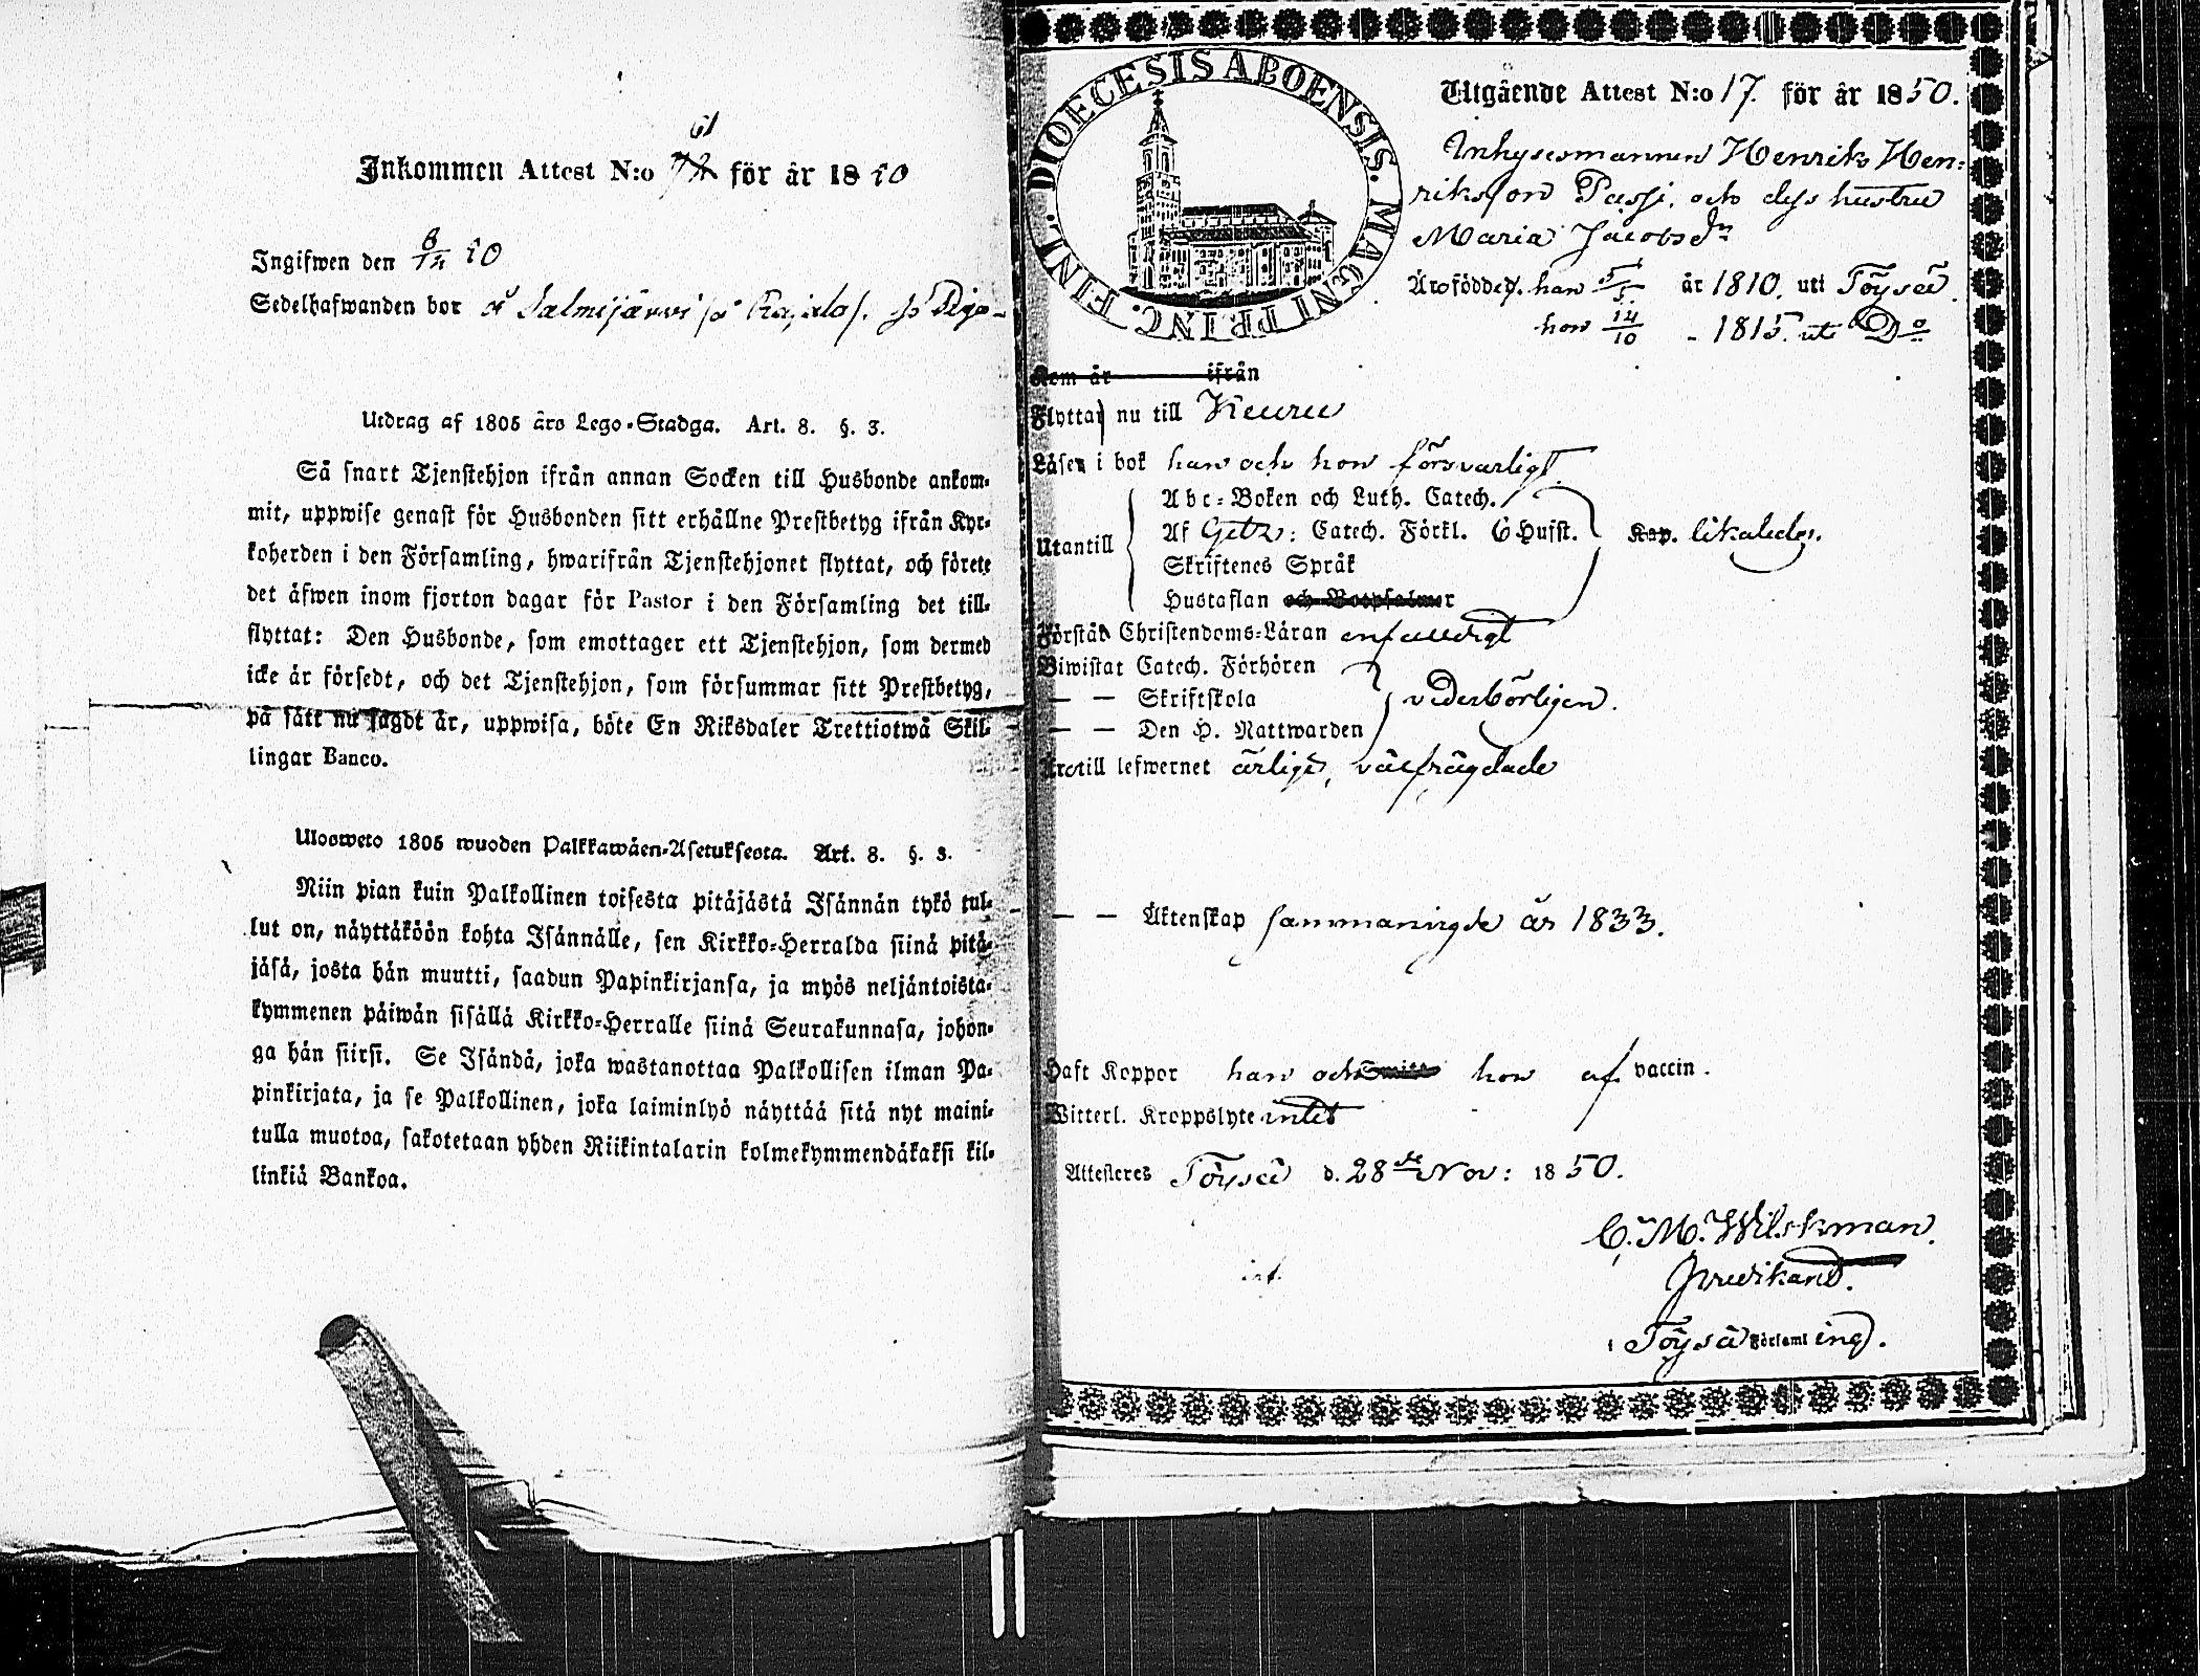 61
Inkommen Attest N:o 72 för år 1850
Ingifwen den 8/12 50
Sedelhafwanden bor å Salmijärvi på
Utdrag af 1805 års Lego-Stadga. Art. 8. §. 3.
Så snart Tjenstehjon ifrån annan Socken till Husbonde ankom-
mit, uppwise genast för Husbonden sitt erhållne Prestbetyg ifrån Kyr-
koherden i den Församling, hwarifrån Tjenstehjonet flyttat, och förete
det äfwen inom fjorton dagar för Pastor i den Församling det till-
flyttat: Den Husbonde, som emottager ett Tjenstehjon, som dermed
icke är försedt, och det Tjenstehjon, som försummar sitt Prestbetyg,
på sätt nu sagdt är, uppwisa, böte En Riksdaler Trettiotwå Skil-
lingar Banco.
Ulosweto 1805 wuoden Palkkawäen-Asetuksesta. Art. 8. §. 3.
Niin pian kuin Palkollinen toisesta pitäjästä Isännän tykö tul-
lut on, näyttäköön kohta Isännälle, sen Kirkko-Herralda siinä pitä-
jäsä, josta hän muutti, saadun Papinkirjansa, ja myös neljäntoista-
kymmenen päiwän sisällä Kirkko-Herralle siinä Seurakunnasa, johon-
ga hän siirsi. Se Isändä, joka wastanottaa Palkollisen ilman Pa-
pinkirjata, ja se Palkollinen, joka laiminlyö näyttää sitä nyt maini-
tulla muotoa, sakotetaan yhden Riikintalarin kolmekymmendäkaksi kil-
linkiä Bankoa.
DIOECESIS ABOENSIS. MAGNI PRINC. FINL.
Utgående Attest N:o 17. för år 1850.
Inhysesmannen Henrik Hen-
riksson Passi, och dess hustru
Maria Jacobsdr
Äro födde, han 5/5. år 1810. uti Töysä
hon 14/10 - 1815. uti Do
Kom år ifrån
Flyttar nu till Keuru
Läser i bok han och hon försvarligt
Utantill
Abc-Boken och Luth. Catech.
Af Getz: Catech. Förkl. 6 Hufst.
Skriftenes Språk
Hustaflan och Botpsalmer
Kap. likaledes.
Förstår Christendoms-Läran enfaldigt
Biwistat Catech. Förhören
— — Skriftskola
— — Den H. Nattwarden
vederbörligen.
Äro till lefwernet ärlige, välfrägdade
— — Äktenskap sammanvigde år 1833.
Haft Koppor han och hon af vaccin.
Witterl. Kroppslyte intet
Attesteres Töysä d. 28de Nov: 1850.
C. M. Wilskman.
Predikant.
i Töysä Församling.